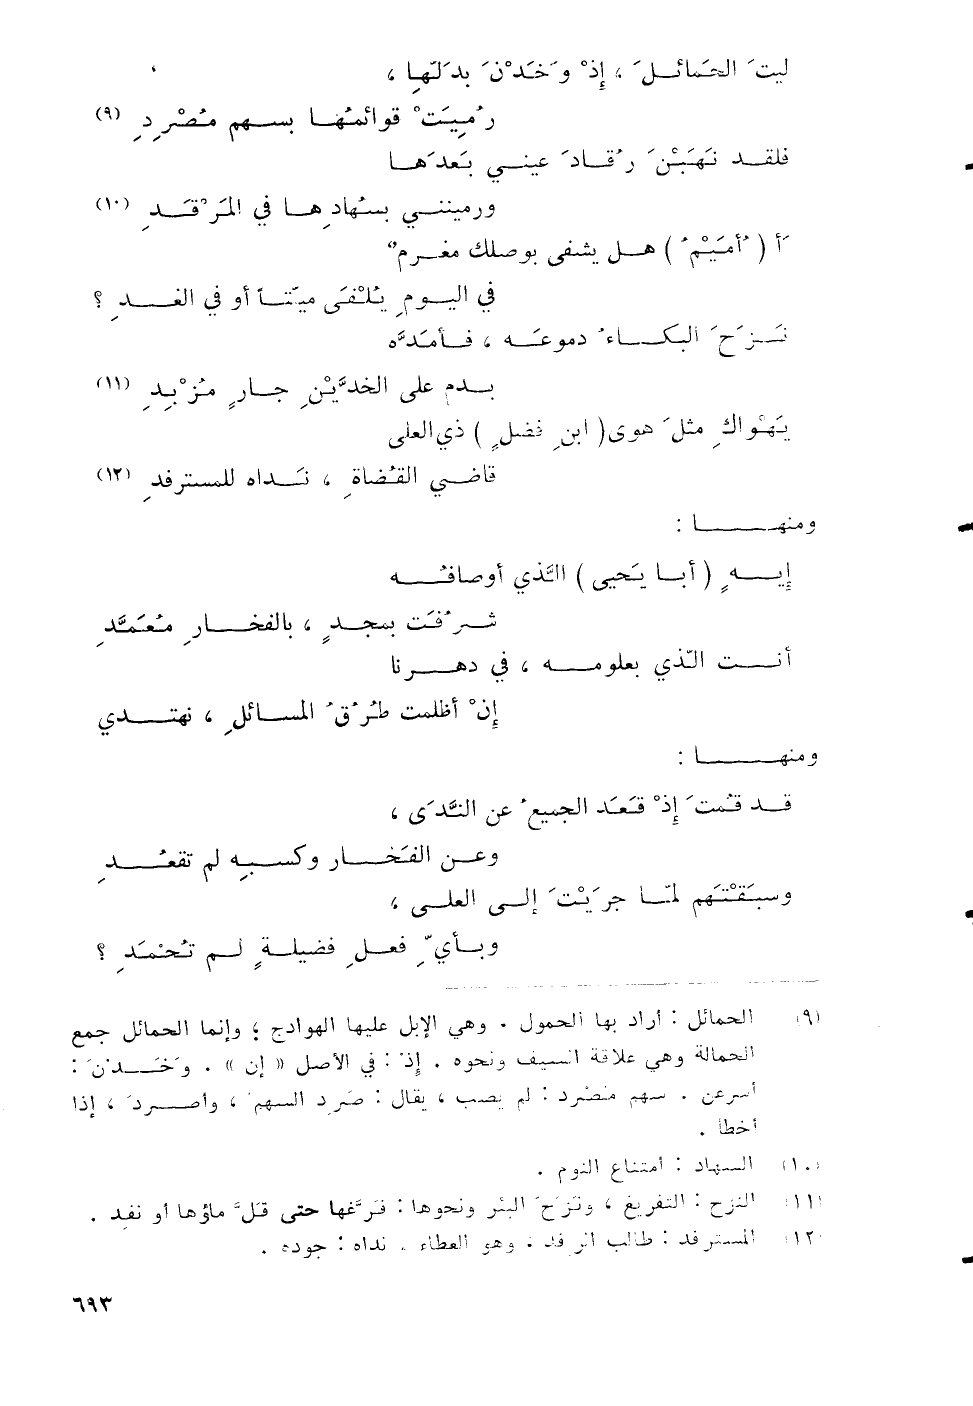 ليتَ الحَمائلَ ، إِذْ وَخَدْنَ بِدَلِّها ،
رُمِيَتْ قوائمُها بسهمٍ مُصْرِدِ (٩)
فلقد نَهَبْنَ رُقادَ عيني بَعدَها
ورمينني بسُهادِها في المَرْقَدِ (١٠)
أَ ( أُمَيْمُ ) هل يشفى بوصلك مغرمٌ
في اليومِ يُلْفَى ميّتاً أو في الغدِ ؟
نَزَحَ البكاءُ دموعَه ، فأمَدَّه
بدمٍ على الخدَّيْنِ جارٍ مُزْبِدِ (١١)
يَهْواكِ مثلَ هوى ( ابنِ فضلٍ ) ذي العلى
قاضي القُضاةِ ، نَداه للمسترفدِ (١٢)
ومنها :
إيهٍ ( أبا يَحيى ) الّذي أوصافُه
شَرُفَت بمجدٍ ، بالفخارِ مُعَمَّدِ
أنت الّذي بعلومه ، في دهرنا
إِنْ أظلمت طُرُقُ المسائلِ ، نهتدي
ومنها :
قد قُمتَ إِذْ قَعَد الجميعُ عن النَّدَى ،
وعن الفَخار وكسبِه لم تقعُدِ
وسبَقْتَهم لمّا جرَيْتَ إلى العلى ،
وبأيِّ فعلِ فضيلةٍ لم تُحْمَدِ ؟
(٩) الحمائل : أراد بها الحمول . وهي الإبل عليها الهوادج ؛ وإنما الحمائل جمع
الحمالة وهي علاقة السيف ونحوه . إذْ : في الأصل « إن » . وَخَدْنَ :
أسرعن . سهم مصْرد : لم يصب ، يقال : صَرِد السهمُ ، وأصردَ ، إذا
أخطأ .
(١٠) السهاد : امتناع النوم .
(١١) النزح : التفريغ ، ونَزَحَ البئر ونحوها : فرَّغها حتى قلَّ ماؤها أو نفد .
(١٢) المسترفد : طالب الرفد ، وهو العطاء . نداه : جوده .
٦٩٣